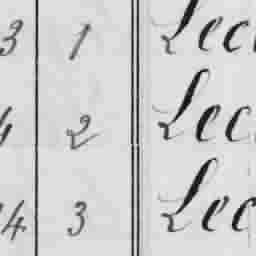 3 1 Lec
4 2 Lec
14 3 Lec